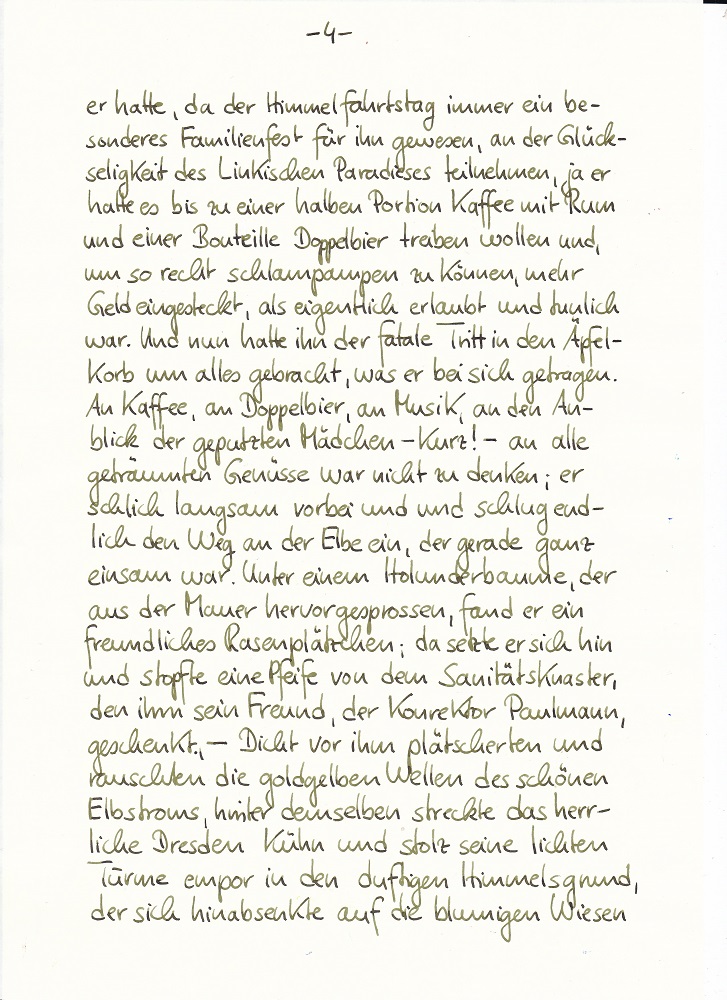 -4-
er hatte, da der Himmelfahrtstag immer ein be-
sonderes Familienfest für ihn gewesen, an der Glück-
seligkeit des Linkischen Paradieses teilnehmen, ja er
hatte es bis zu einer halben Portion Kaffee mit Rum
und einer Bouteille Doppelbier treiben wollen und,
um so recht schlampampen zu können, mehr
Geld eingesteckt, als eigentlich erlaubt und tunlich
war. Und nun hatte ihn der fatale Tritt in den Äpfel-
korb um alles gebracht, was er bei sich getragen.
An Kaffee, an Doppelbier, an Musik, an den An-
blick der geputzten Mädchen - kurz! - an alle
geträumten Genüsse war nicht zu denken; er
schlich langsam vorbei und und schlug end-
lich den Weg an der Elbe ein, der gerade ganz
einsam war. Unter einem Holunderbaume, der
aus der Mauer hervorgesprossen, fand er ein
freundliches Rasenplätzchen; da setzte er sich hin
und stopfte eine Pfeife von dem Sanitätsknaster,
den ihm sein Freund, der Konrektor Paulmann,
geschenkt. — Dicht vor ihm plätscherten und
rauschten die goldgelben Wellen des schönen
Elbstroms, hinter demselben streckte das herr-
liche Dresden kühn und stolz seine lichten
Türme empor in den duftigen Himmelsgrund,
der sich hinabsenkte auf die blumigen Wiesen